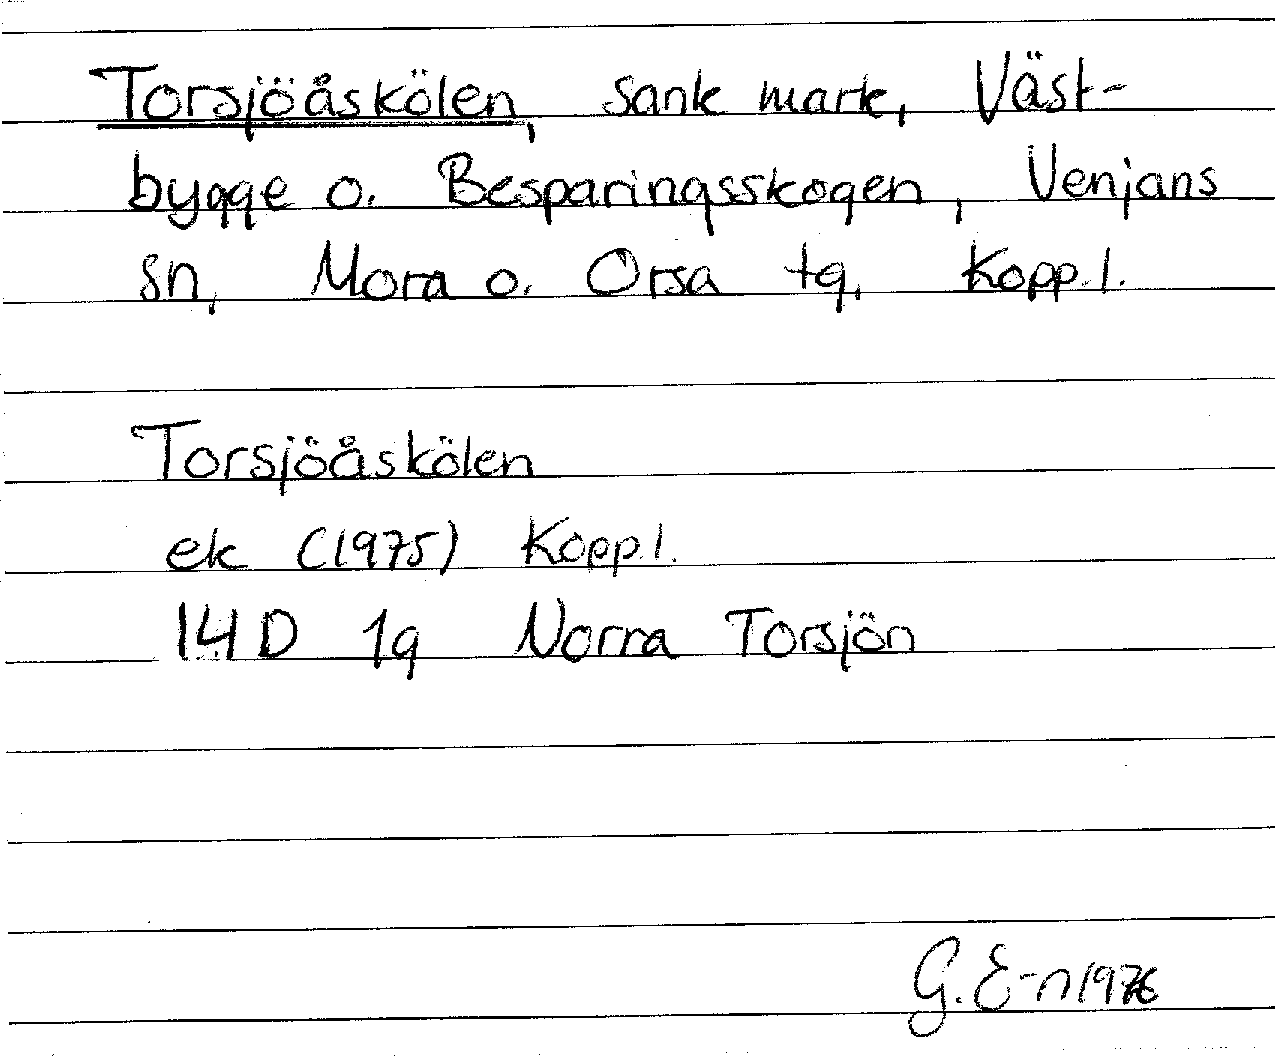 Torsjöåskölen, sank mark, Väst-
bygge o. Besparingsskogen, Venjans
sn, Mora o. Orsa tg, Kopp.l.
Torsjöåskölen
ek (1975) Kopp.l.
14D 1g Norra Torsjön
G. E-n 1976